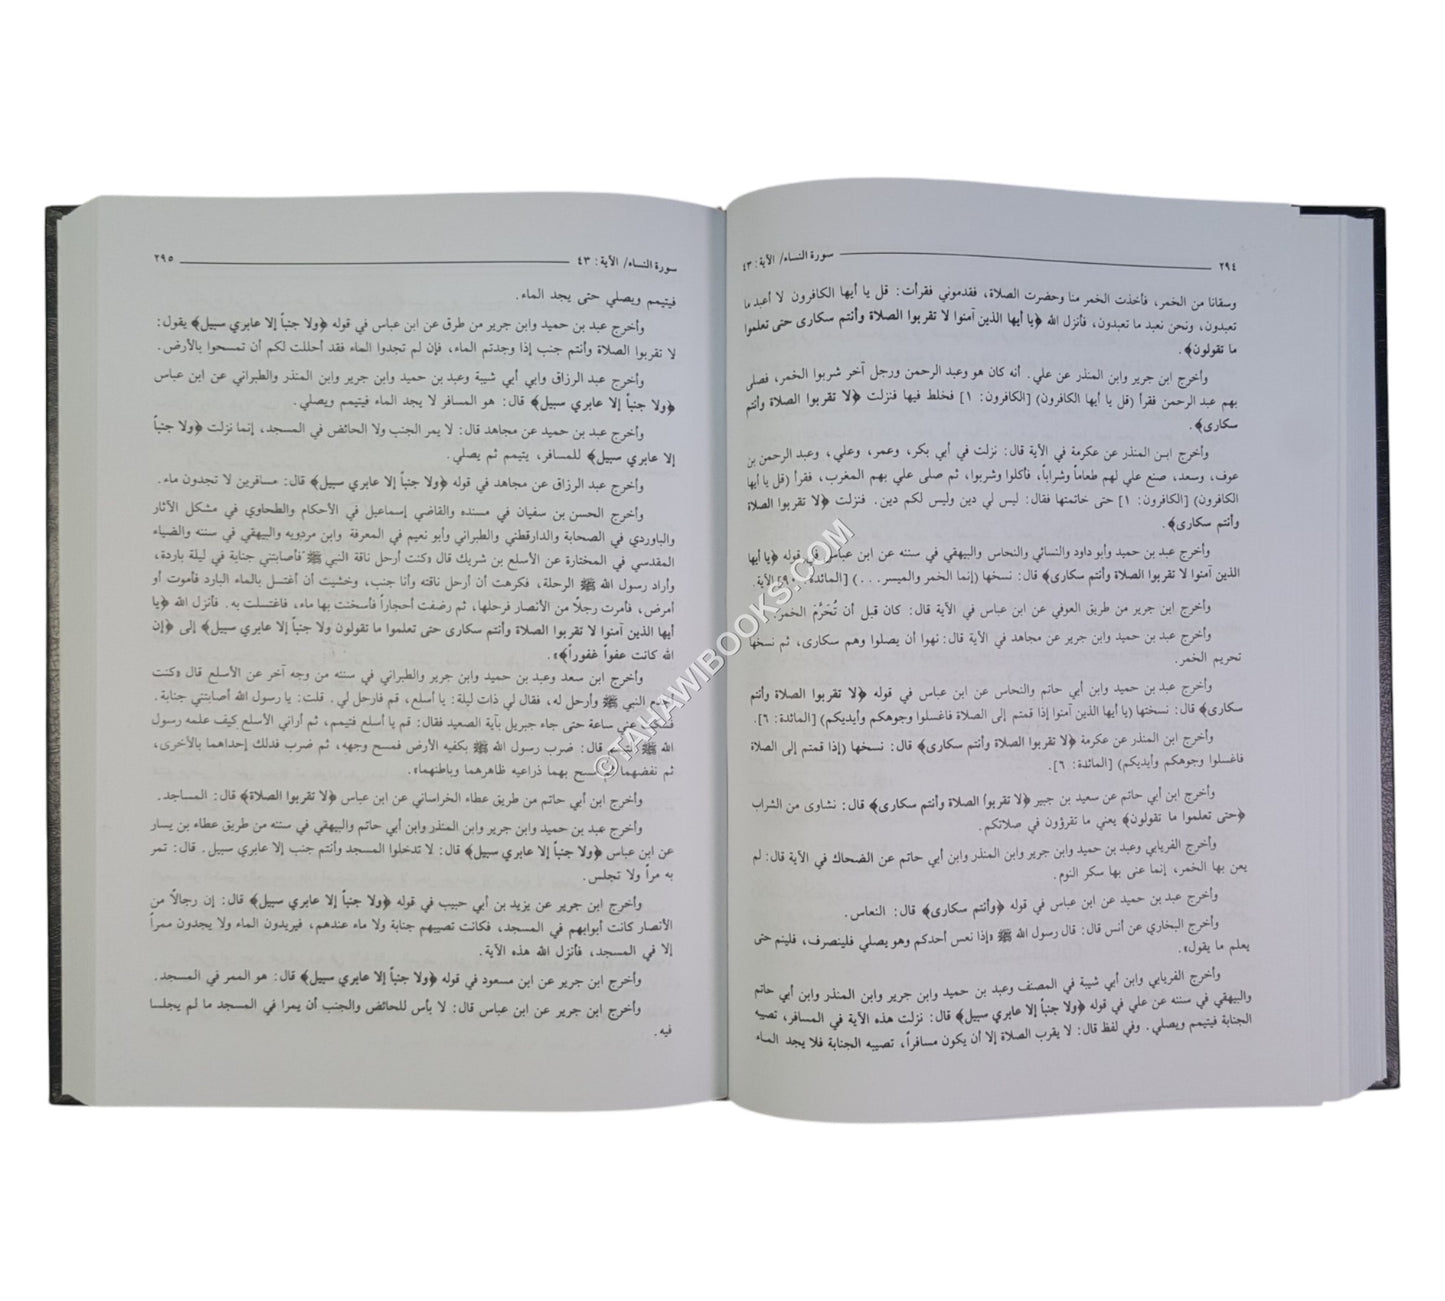 ٢٩٤ سورة النساء/ الآية: ٤٣
وسقانا من الخمر، فأخذت الخمر منا وحضرت الصلاة، فقدموني فقرأت: قل يا أيها الكافرون لا أعبد ما
تعبدون، ونحن نعبد ما تعبدون، فأنزل الله ﴿يا أيها الذين آمنوا لا تقربوا الصلاة وأنتم سكارى حتى تعلموا
ما تقولون﴾.
وأخرج ابن جرير وابن المنذر عن علي. أنه كان هو وعبد الرحمن ورجل آخر شربوا الخمر، فصلى
بهم عبد الرحمن فقرأ (قل يا أيها الكافرون) [الكافرون: ١] فخلط فيها فنزلت ﴿لا تقربوا الصلاة وأنتم
سكارى﴾.
وأخرج ابن المنذر عن عكرمة في الآية قال: نزلت في أبي بكر، وعمر، وعلي، وعبد الرحمن بن
عوف، وسعد، صنع علي لهم طعاماً وشراباً، فأكلوا وشربوا، ثم صلى علي بهم المغرب، فقرأ (قل يا أيها
الكافرون) [الكافرون: ١] حتى خاتمتها فقال: ليس لي دين وليس لكم دين. فنزلت ﴿لا تقربوا الصلاة
وأنتم سكارى﴾.
وأخرج عبد بن حميد وأبو داود والنسائي والنحاس والبيهقي في سننه عن ابن عباس في قوله ﴿يا أيها
الذين آمنوا لا تقربوا الصلاة وأنتم سكارى﴾ قال: نسخها (إنما الخمر والميسر...) [المائدة: ٩٠] الآية.
وأخرج ابن جرير من طريق العوفي عن ابن عباس في الآية قال: كان قبل أن تُحَرَّمَ الخمر.
وأخرج عبد بن حميد وابن جرير عن مجاهد في الآية قال: نهوا أن يصلوا وهم سكارى، ثم نسخها
تحريم الخمر.
وأخرج عبد بن حميد وابن أبي حاتم والنحاس عن ابن عباس في قوله ﴿لا تقربوا الصلاة وأنتم
سكارى﴾ قال: نسختها (يا أيها الذين آمنوا إذا قمتم إلى الصلاة فاغسلوا وجوهكم وأيديكم) [المائدة: ٦].
وأخرج ابن المنذر عن عكرمة ﴿لا تقربوا الصلاة وأنتم سكارى﴾ قال: نسخها (إذا قمتم إلى الصلاة
فاغسلوا وجوهكم وأيديكم) [المائدة: ٦].
وأخرج ابن أبي حاتم عن سعيد بن جبير ﴿لا تقربوا الصلاة وأنتم سكارى﴾ قال: نشاوى من الشراب
﴿حتى تعلموا ما تقولون﴾ يعني ما تقرؤون في صلاتكم.
وأخرج الفريابي وعبد بن حميد وابن جرير وابن المنذر وابن أبي حاتم عن الضحاك في الآية قال: لم
يعن بها الخمر، إنما عنى بها سكر النوم.
وأخرج عبد بن حميد عن ابن عباس في قوله ﴿وأنتم سكارى﴾ قال: النعاس.
وأخرج البخاري عن أنس قال: قال رسول الله ﷺ «إذا نعس أحدكم وهو يصلي فلينصرف، فلينم حتى
يعلم ما يقول».
وأخرج الفريابي وابن أبي شيبة في المصنف وعبد بن حميد وابن جرير وابن المنذر وابن أبي حاتم
والبيهقي في سننه عن علي في قوله ﴿ولا جنباً إلا عابري سبيل﴾ قال: نزلت هذه الآية في المسافر، تصيبه
الجنابة فيتيمم ويصلي. وفي لفظ قال: لا يقرب الصلاة إلا أن يكون مسافراً، تصيبه الجنابة فلا يجد الماء
سورة النساء/ الآية: ٤٣ ٢٩٥
فيتيمم ويصلي حتى يجد الماء.
وأخرج عبد بن حميد وابن جرير من طرق عن ابن عباس في قوله ﴿ولا جنباً إلا عابري سبيل﴾ يقول:
لا تقربوا الصلاة وأنتم جنب إذا وجدتم الماء، فإن لم تجدوا الماء فقد أحللت لكم أن تمسحوا بالأرض.
وأخرج عبد الرزاق وابي أبي شيبة وعبد بن حميد وابن جرير وابن المنذر والطبراني عن ابن عباس
﴿ولا جنباً إلا عابري سبيل﴾ قال: هو المسافر لا يجد الماء فيتيمم ويصلي.
وأخرج عبد بن حميد عن مجاهد قال: لا يمر الجنب ولا الحائض في المسجد، إنما نزلت ﴿ولا جنباً
إلا عابري سبيل﴾ للمسافر، يتيمم ثم يصلي.
وأخرج عبد الرزاق عن مجاهد في قوله ﴿ولا جنباً إلا عابري سبيل﴾ قال: مسافرين لا تجدون ماء.
وأخرج الحسن بن سفيان في مسنده والقاضي إسماعيل في الأحكام والطحاوي في مشكل الآثار
والباوردي في الصحابة والدارقطني والطبراني وأبو نعيم في المعرفة وابن مردويه والبيهقي في سننه والضياء
المقدسي في المختارة عن الأسلع بن شريك قال «كنت أرحل ناقة النبي ﷺ فأصابتني جنابة في ليلة باردة،
وأراد رسول الله ﷺ الرحلة، فكرهت أن أرحل ناقته وأنا جنب، وخشيت أن أغتسل بالماء البارد فأموت أو
أمرض، فأمرت رجلاً من الأنصار فرحلها، ثم رضفت أحجاراً فأسخنت بها ماء، فاغتسلت به. فأنزل الله ﴿يا
أيها الذين آمنوا لا تقربوا الصلاة وأنتم سكارى حتى تعلموا ما تقولون ولا جنباً إلا عابري سبيل﴾ إلى ﴿إن
الله كانت عفواً غفوراً﴾».
وأخرج ابن سعد وعبد بن حميد وابن جرير والطبراني في سننه من وجه آخر عن الأسلع قال «كنت
النبي ﷺ وأرحل له، فقال لي ذات ليلة: يا أسلع، قم فارحل لي. قلت: يا رسول الله أصابتني جنابة.
عني ساعة حتى جاء جبريل بآية الصعيد فقال: قم يا أسلع فتيمم، ثم أراني الأسلع كيف علمه رسول
الله ﷺ قال: ضرب رسول الله ﷺ بكفيه الأرض فمسح وجهه، ثم ضرب فدلك إحداهما بالأخرى،
ثم نفضهما بهما ذراعيه ظاهرهما وباطنهما».
وأخرج ابن أبي حاتم من طريق عطاء الخراساني عن ابن عباس ﴿لا تقربوا الصلاة﴾ قال: المساجد.
وأخرج عبد بن حميد وابن جرير وابن المنذر وابن أبي حاتم والبيهقي في سننه من طريق عطاء بن يسار
عن ابن عباس ﴿ولا جنباً إلا عابري سبيل﴾ قال: لا تدخلوا المسجد وأنتم جنب إلا عابري سبيل. قال: تمر
به مراً ولا تجلس.
وأخرج ابن جرير عن يزيد بن أبي حبيب في قوله ﴿ولا جنباً إلا عابري سبيل﴾ قال: إن رجالاً من
الأنصار كانت أبوابهم في المسجد، فكانت تصيبهم جنابة ولا ماء عندهم، فيريدون الماء ولا يجدون ممراً
إلا في المسجد، فأنزل الله هذه الآية.
وأخرج ابن جرير عن ابن مسعود في قوله ﴿ولا جنباً إلا عابري سبيل﴾ قال: هو الممر في المسجد.
وأخرج ابن جرير عن ابن عباس قال: لا بأس للحائض والجنب أن يمرا في المسجد ما لم يجلسا
فيه.
©TAHAWIBOOKS.COM